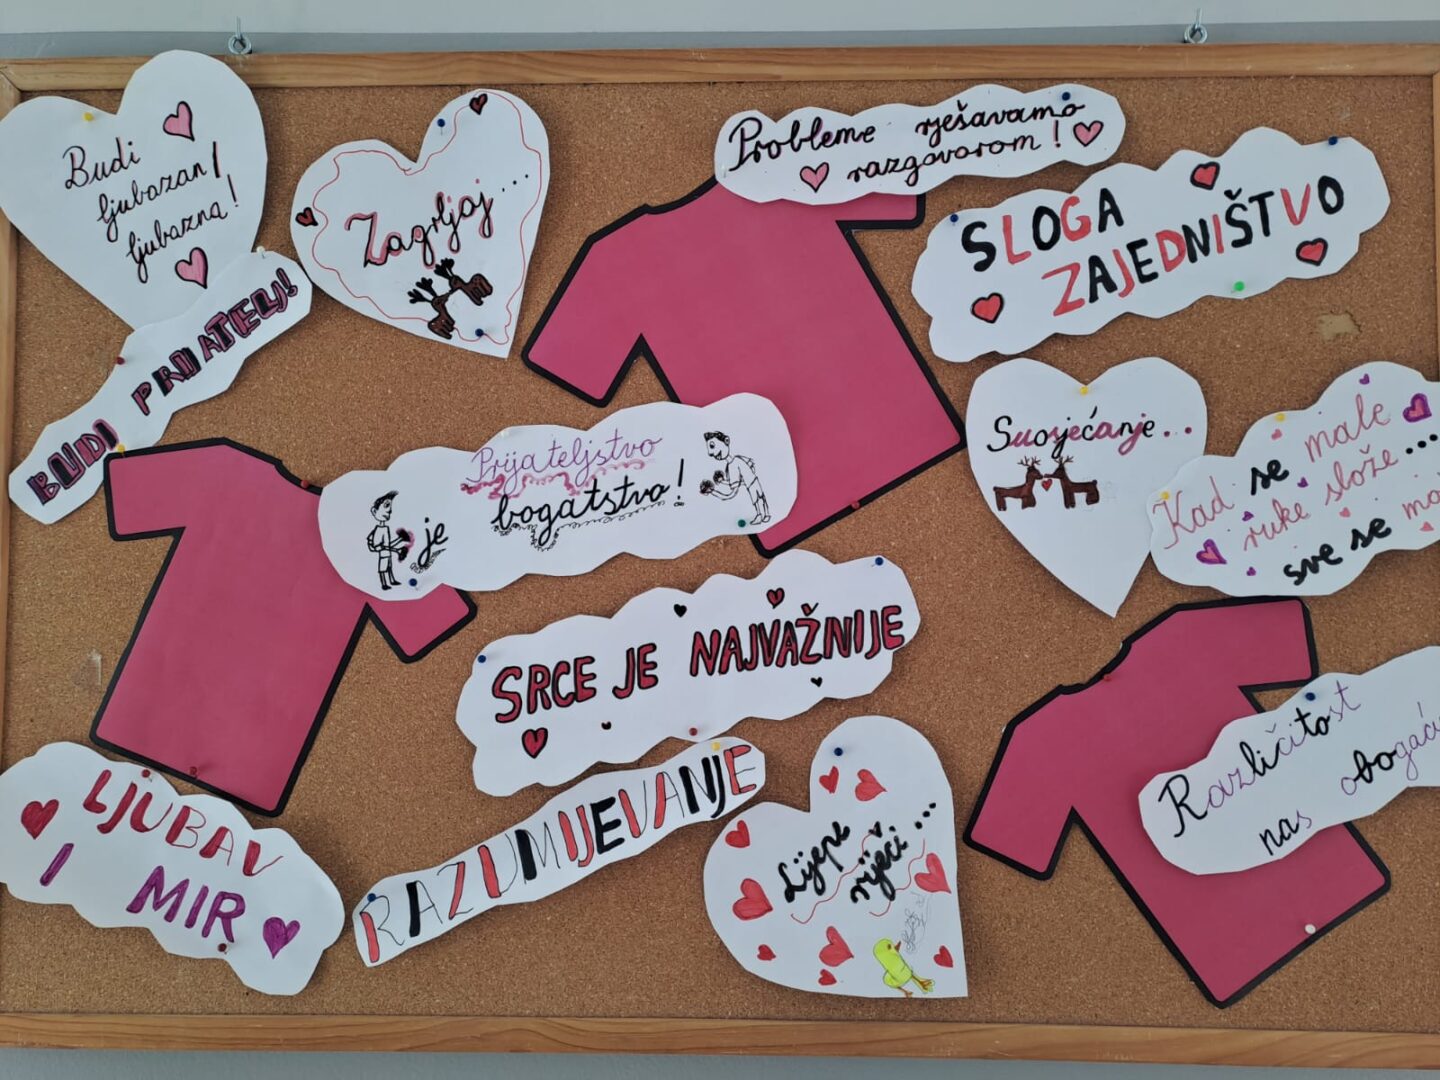 Budi
ljubazan!
ljubazna!
Zagrljaj...
Probleme rješavamo
razgovorom!
SLOGA
ZAJEDNIŠTVO
BUDI PRIJATELJ!
Prijateljstvo
je bogatstvo!
Suosjećanje...
Kad se male
ruke slože...
sve se
SRCE JE NAJVAŽNIJE
Različitost
nas obogaću
LJUBAV
I MIR
RAZUMIJEVANJE
Lijepe
riječi...